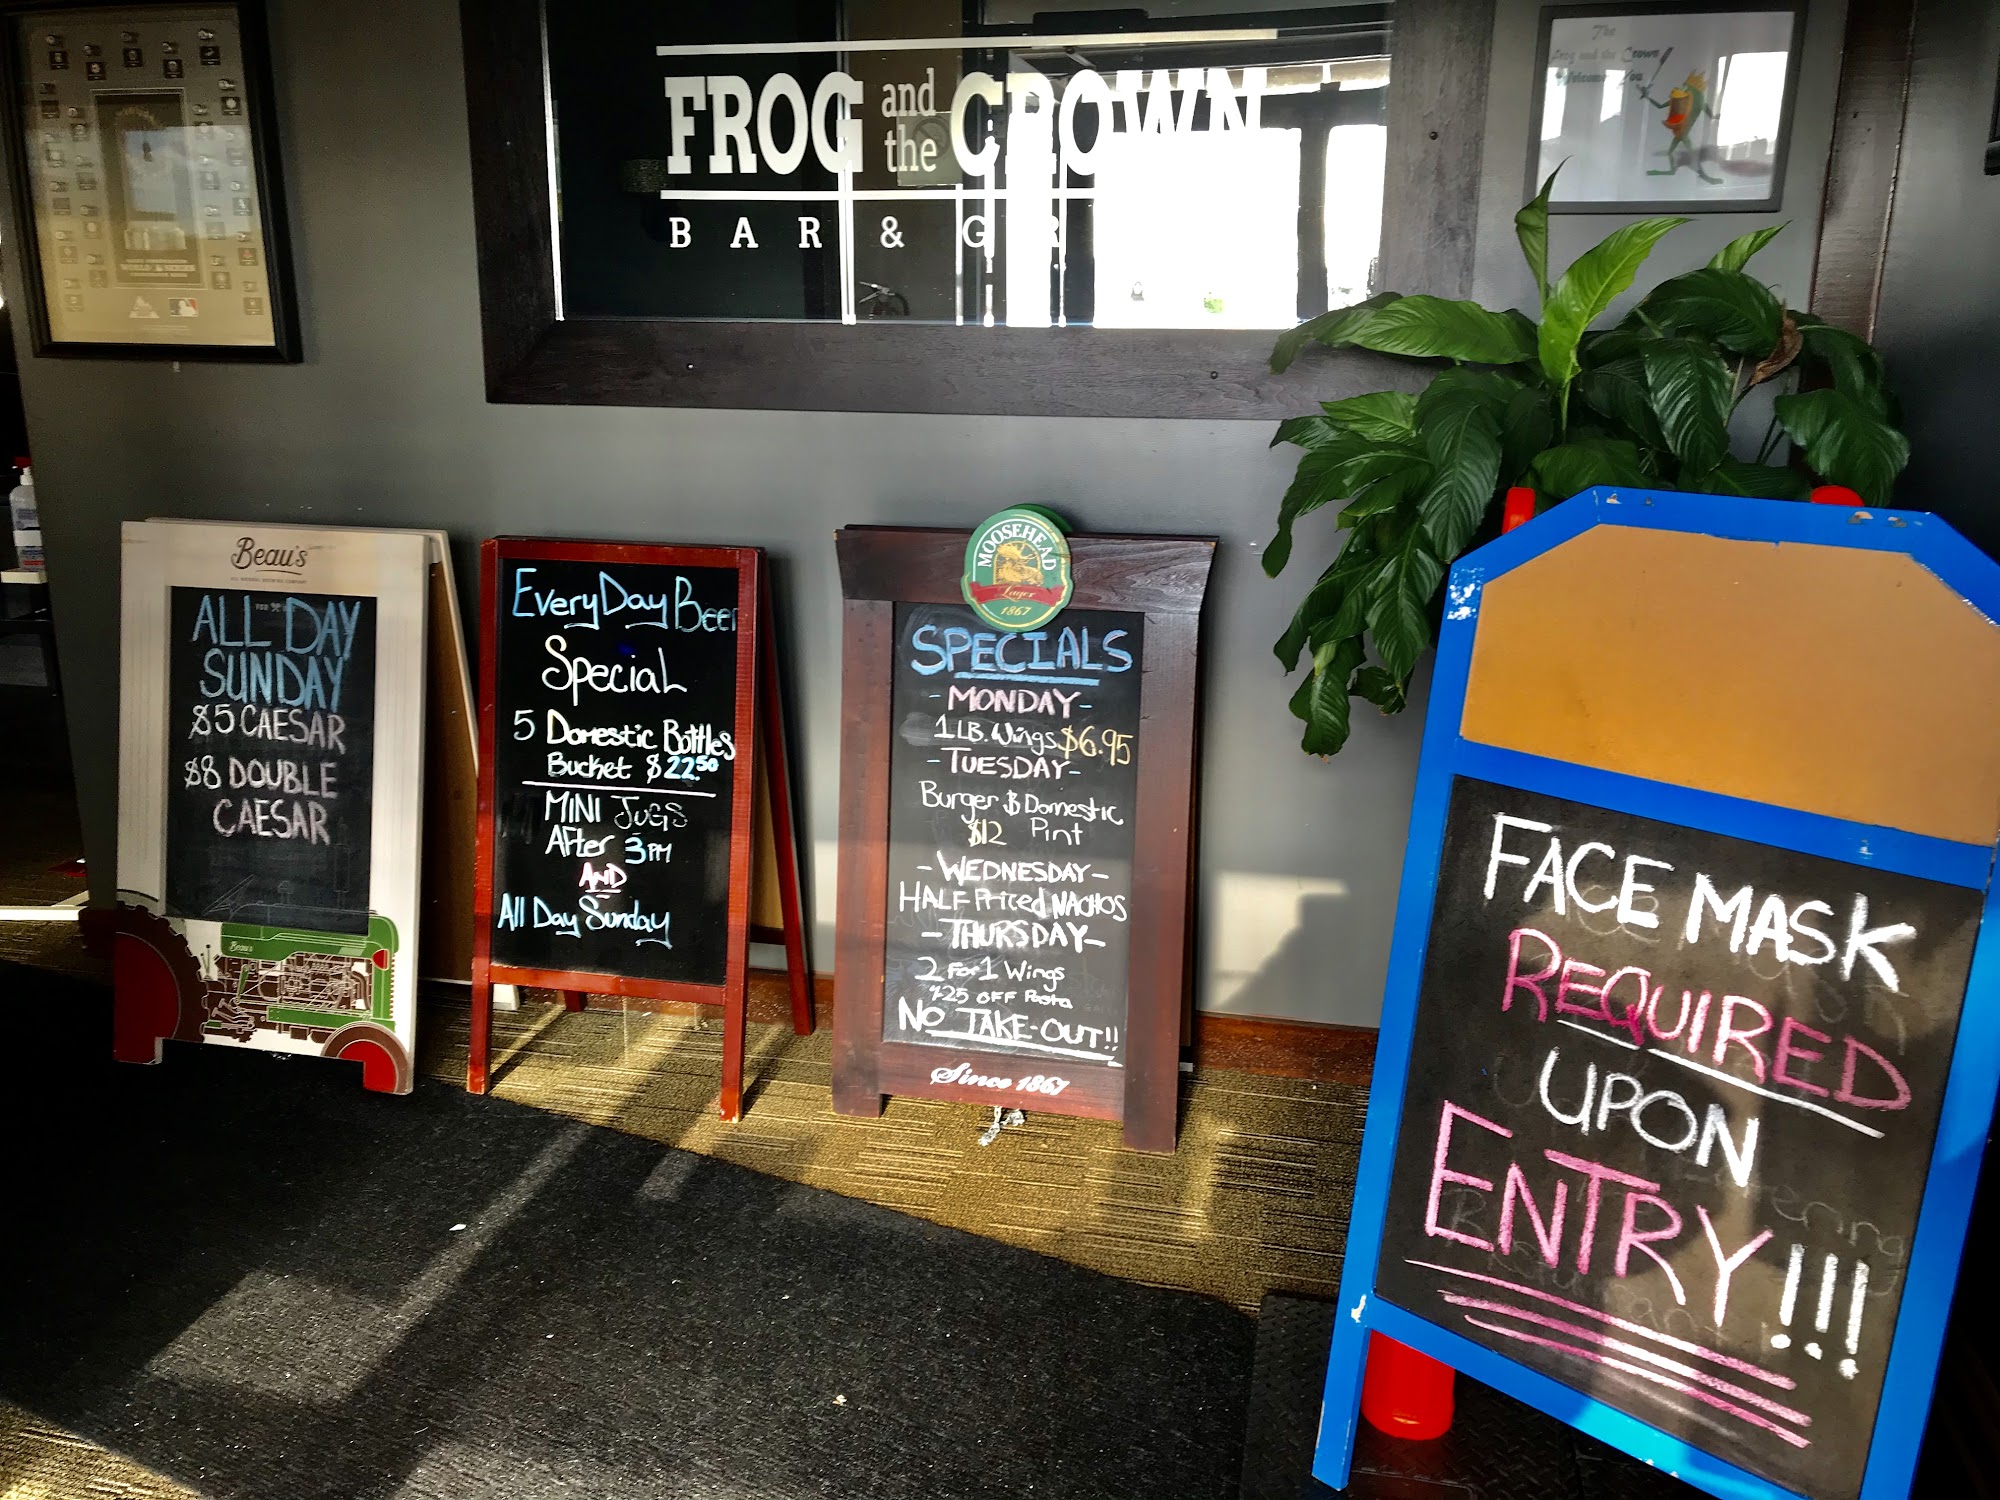 FROG and the CROWN
BAR & GR
The
Frog and the Crown
Welcomes You
WORLD SERIES
Beau's
ALL NATURAL BREWING COMPANY
ALL DAY
SUNDAY
$5 CAESAR
$8 DOUBLE
CAESAR
Beau's
EveryDay Beer
Special
5 Domestic Bottles
Bucket $22.50
MINI JUGS
AFter 3PM
AND
All Day Sunday
MOOSEHEAD
Lager
1867
SPECIALS
- MONDAY -
1 LB. Wings $6.95
- TUESDAY -
Burger & Domestic
$12 Pint
- WEDNESDAY -
HALF Priced NACHOS
- THURSDAY -
2 For 1 Wings
OFF Pasta
NO TAKE-OUT!!
Since 1867
FACE MASK
REQUIRED
UPON
ENTRY!!!